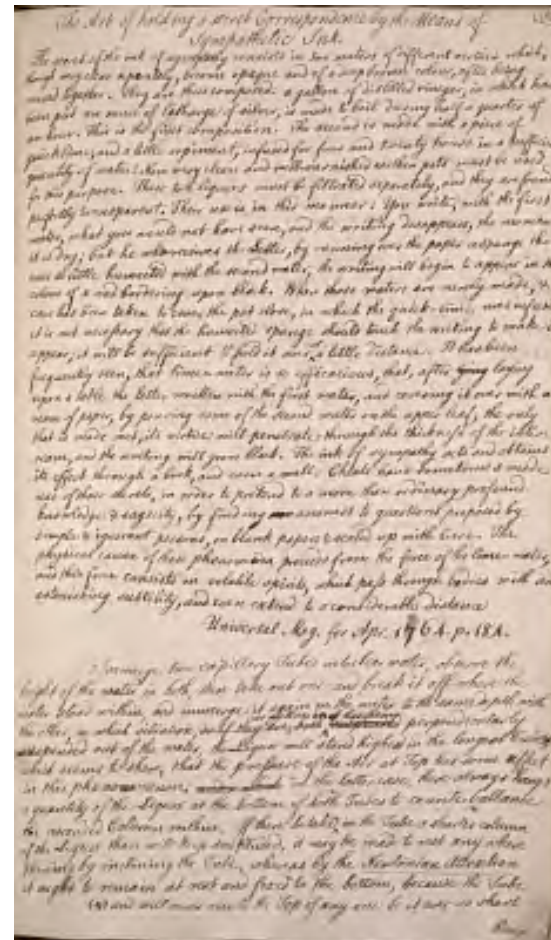 The Art of holding a secret Correspondence by the Means of
Sympathetic Ink.
The secret of the ink of sympathy consists in two waters of different natures which,
though very clear separately, become opaque and of a deep brown colour, after being
mixed together. They are thus composed: a gallon of distilled vinegar, in which has
been put an ounce of litharge of silver, is made to boil during half a quarter of
an hour. This is the first composition. The second is made with a piece of
quicklime, and a little orpiment, infused for four and twenty hours in a sufficient
quantity of water: New very clean and well varnished earthen pots must be used
for this purpose. These two liquors must be filtrated separately, and they are found
perfectly transparent. Their use is in this manner: You write, with the first
water, what you would not have seen, and the writing disappears, the moment
it is dry; but he who receives the letter, by running over the paper a sponge the
least little humected with the second water, the writing will begin to appear in the
colour of a red bordering upon black. When these waters are newly made, &
care has been taken to cover the pot close, in which the quick-lime was infused
it is not necessary that the humected sponge should touch the writing to make it
appear, it will be sufficient to hold it at a little distance. It has been
frequently seen, that lime-water is so efficacious, that, after laying
upon a table the letter written with the first water, and covering it over with a
ream of paper, by pouring some of the second water on the upper leaf, the only
that is made wet, its virtue will penetrate through the thickness of the entire
ream, and the writing will grow black. The ink of sympathy acts and obtains
its effect through a book, and even a wall. Cheats have sometimes made
use of these secrets, in order to pretend to a more than ordinary profound
knowledge & sagacity, by finding answers to questions proposed by
simple & ignorant persons, on blank papers sealed up with care. The
physical cause of these phenomena proceeds from the force of the lime-water,
and this force consists in volatile spirits, which pass through bodies with an
astonishing subtility, and even extend to a considerable distance
Universal Mag. for Apr. 1764. p. 184.
Immerge two capillary Tubes in water, observe the
height of the water in both, then take out one and break it off where the
water stood within, and immerge it again in the water to the same depth with
the other, in which situation, perpendicularly
suspended out of the water, the Liquor will stand highest in the longest
which seems to shew, that the pressure of the Air at Top has some effect
in this phænomenon, in the latter case, there always hangs
a quantity of the Liquor at the bottom of both Tubes to counterballance
the included Columns within. If there be left in the Tube a shorter column
of the Liquor than will keep suspended, it may be made to rest any where
by inclining the Tube, whereas by the Newtonian Attraction
it ought to remain at rest and fixed to the bottom, because the Tube
and will move nearer the Top of any one be it ever so short